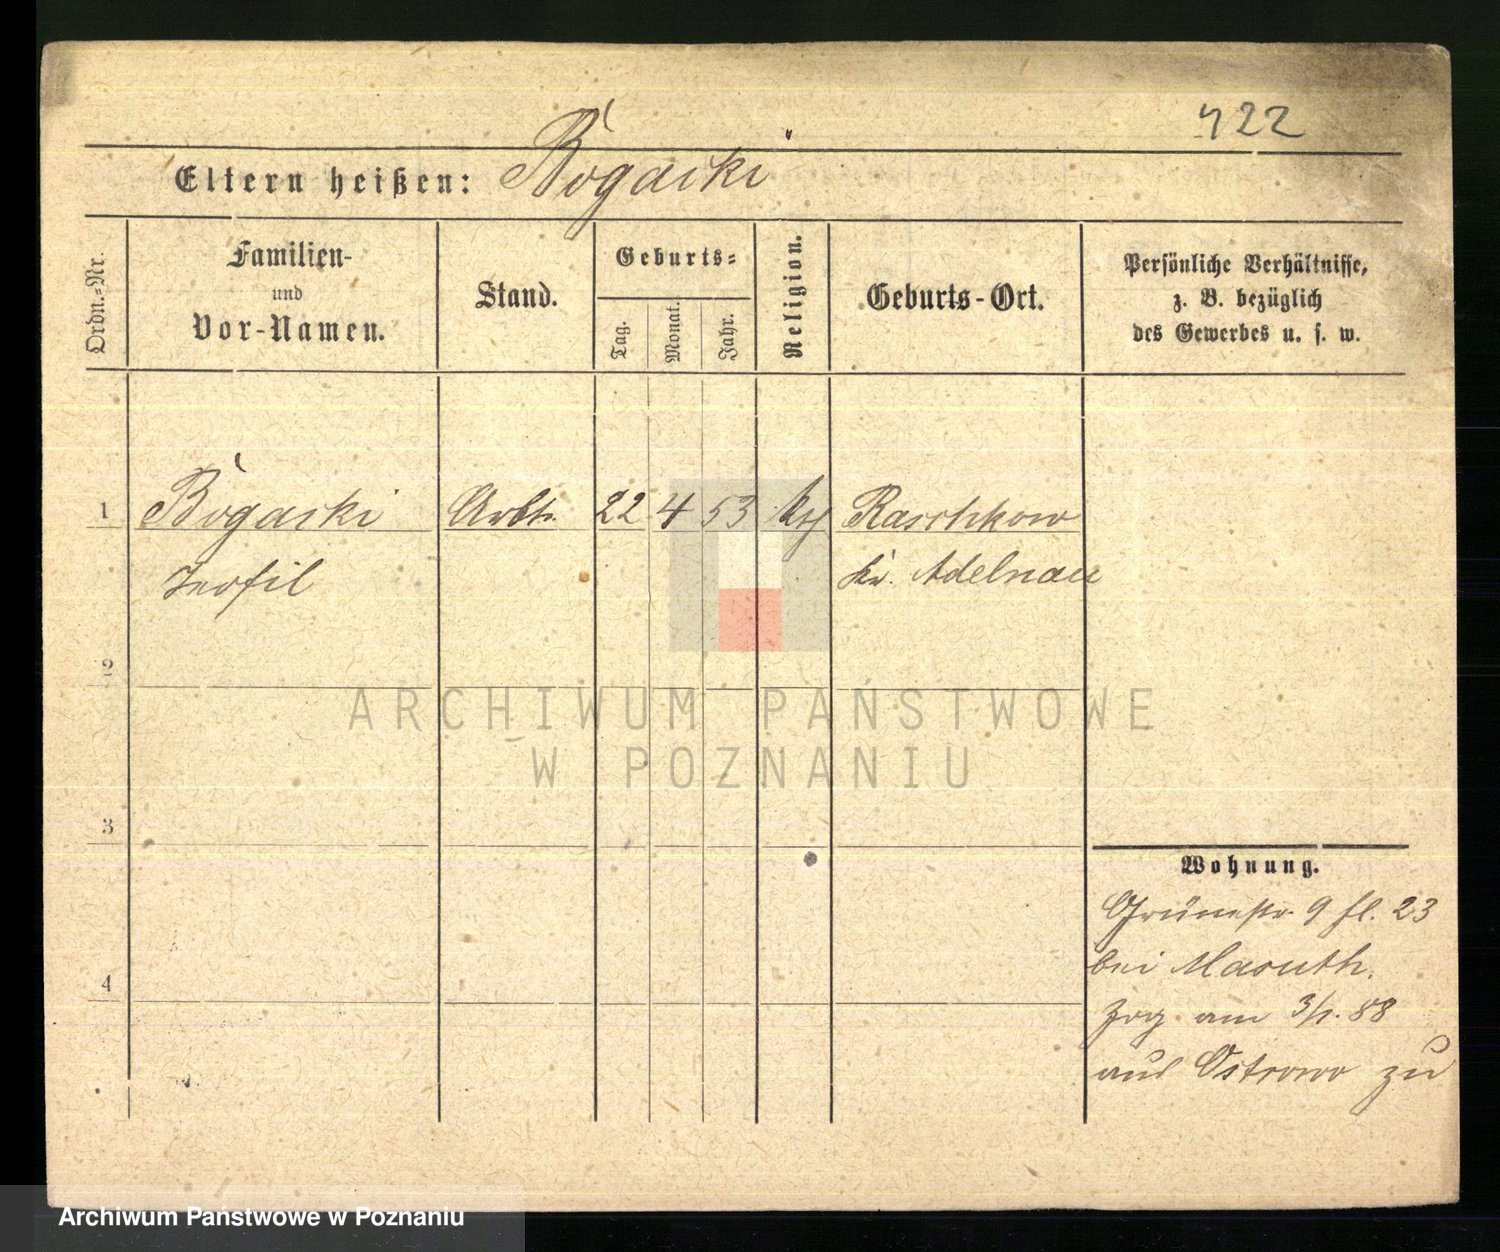 422
Eltern heißen: Bogacki
Ordn.-Nr.
Familien-
und
Vor-Namen.
Stand.
Geburts-
Tag.
Monat.
Jahr.
Religion.
Geburts-Ort.
Persönliche Verhältnisse,
z. B. bezüglich
des Gewerbes u. s. w.
1 Bogacki Arbtr. 22 4 53 Raschkow
Teofil Kr. Adelnau
2
3
4
Wohnung.
Grünestr. 9 fl. 23
bei Masuth.
Zog am 3/1. 88
aus Ostrowo zu
ARCHIWUM PAŃSTWOWE
W POZNANIU
Archiwum Państwowe w Poznaniu